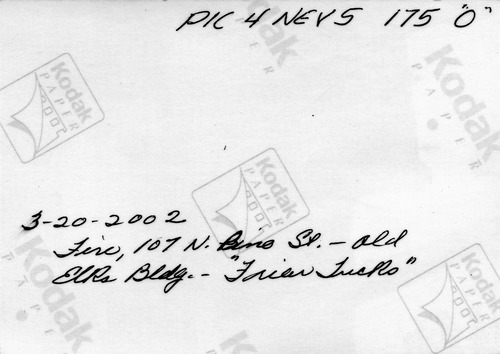 PIC 4 NEVS 175 "O"
Kodak
PAPER
Kodak
PAPER
Kodak
PAPER
3-20-2002
Fire, 107 N. Pine St. - old
Elks Bldg. - "Friar Tucks"
Kodak
PAPER
Kodak
PAPER